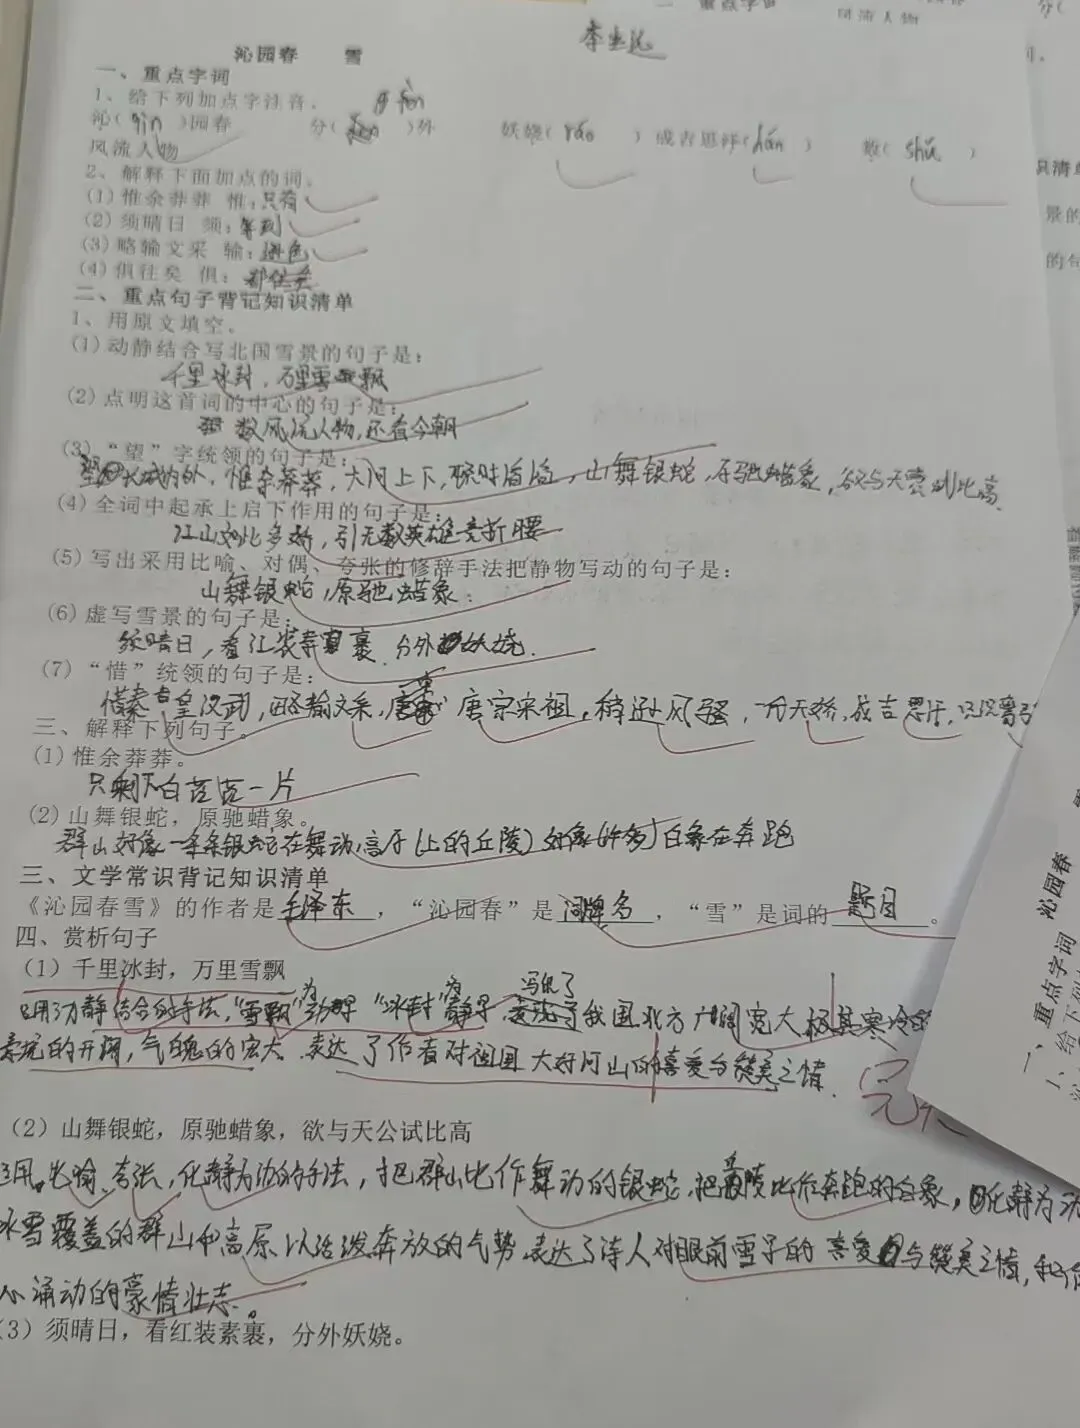 沁园春 雪
一、重点字词
1、给下列加点字注音。 fèn
沁(qìn)园春 分( )外 妖娆(ráo) 成吉思汗(hán) 数(shǔ)
风流人物
2、解释下面加点的词。
(1)惟余莽莽 惟:只有
(2)须晴日 须:等到
(3)略输文采 输:逊色
(4)俱往矣 俱:都
二、重点句子背记知识清单
1、用原文填空。
(1)动静结合写北国雪景的句子是:
千里冰封,万里雪飘
(2)点明这首词的中心的句子是:
数风流人物,还看今朝
(3)“望”字统领的句子是:
望长城内外,惟余莽莽,大河上下,顿时滔滔,山舞银蛇,原驰蜡象,欲与天 比高.
(4)全词中起承上启下作用的句子是:
江山如此多娇,引无数英雄竞折腰
(5)写出采用比喻、对偶、夸张的修辞手法把静物写动的句子是:
山舞银蛇,原驰蜡象:
(6)虚写雪景的句子是:
须晴日,看红装素裹,分外妖娆.
(7)“惜”统领的句子是:
惜秦皇汉武,略输文采,唐宗宋祖,稍逊风骚,一方天骄,成吉思汗,只识弯弓
三、解释下列句子。
(1)惟余莽莽。
只剩下白茫茫一片
(2)山舞银蛇,原驰蜡象。
群山好像一条条银蛇在舞动,高原(上的丘陵)好像(许多)白象在奔跑
三、文学常识背记知识清单
《沁园春雪》的作者是毛泽东,“沁园春”是词牌名,“雪”是词的题目。
四、赏析句子
(1)千里冰封,万里雪飘
用动静结合的手法,“雪飘”为动景 “冰封”为静景,写出了我国北方广阔宽大,极其寒冷的
的开阔,气魄的宏大 表达了作者对祖国大好河山的喜爱与赞美之情.
(2)山舞银蛇,原驰蜡象,欲与天公试比高
运用比喻、夸张,化静为动的手法,把群山比作舞动的银蛇,把高陵比作奔跑的白象,化静为动
冰雪覆盖的群山和高原以活泼奔放的气势 表达了诗人对眼前雪景的喜爱与赞美之情,和
心涌动的豪情壮志。
(3)须晴日,看红装素裹,分外妖娆。
沁园春
一、重点字词
1、给下列